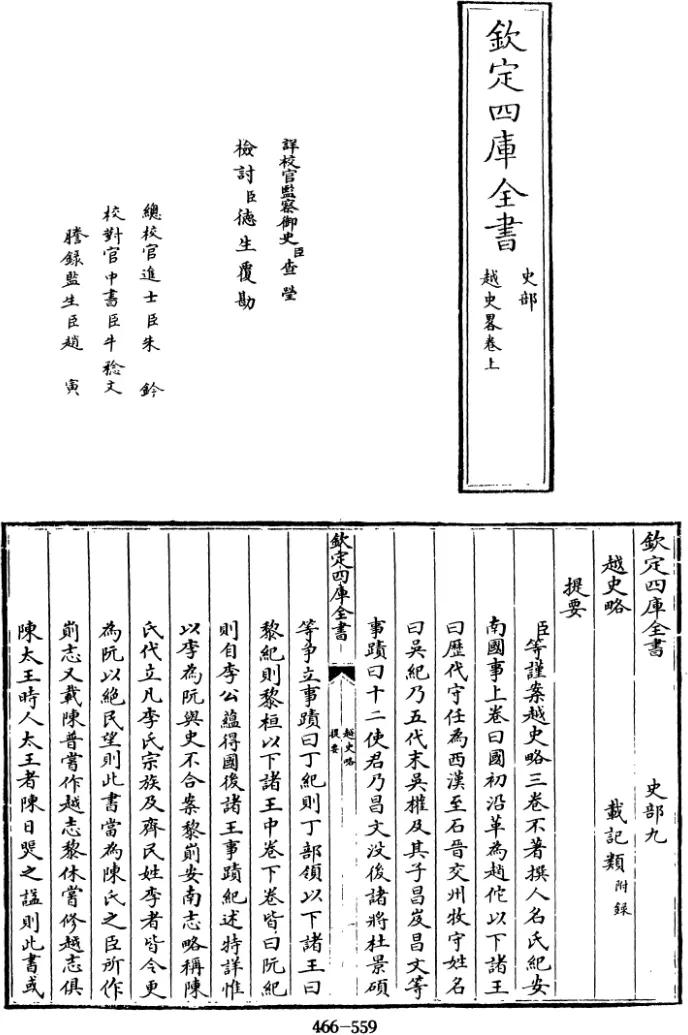 欽定四庫全書
史部
越史畧卷上
詳校官監察御史臣查瑩
檢討臣德生覆勘
總校官進士臣朱鈐
校對官中書臣牛稔文
謄錄監生臣趙寅
欽定四庫全書
史部九
越史略
載記類附錄
提要
臣等謹案越史略三卷不著撰人名氏紀安
南國事上卷曰國初沿革為趙佗以下諸王
曰歷代守任為西漢至石晉交州牧守姓名
曰吳紀乃五代末吳權及其子昌岌昌文等
事蹟曰十二使君乃昌文沒後諸將杜景碩
欽定四庫全書
越史略
提要
等爭立事蹟曰丁紀則丁部領以下諸王曰
黎紀則黎桓以下諸王中卷下卷皆曰阮紀
則自李公蘊得國後諸王事蹟紀述特詳惟
以李為阮與史不合案黎崱安南志略稱陳
氏代立凡李氏宗族及齊民姓李者皆令更
為阮以絕民望則此書當為陳氏之臣所作
崱志又載陳普嘗作越志黎休嘗修越志俱
陳太王時人太王者陳日煚之諡則此書或
466-559